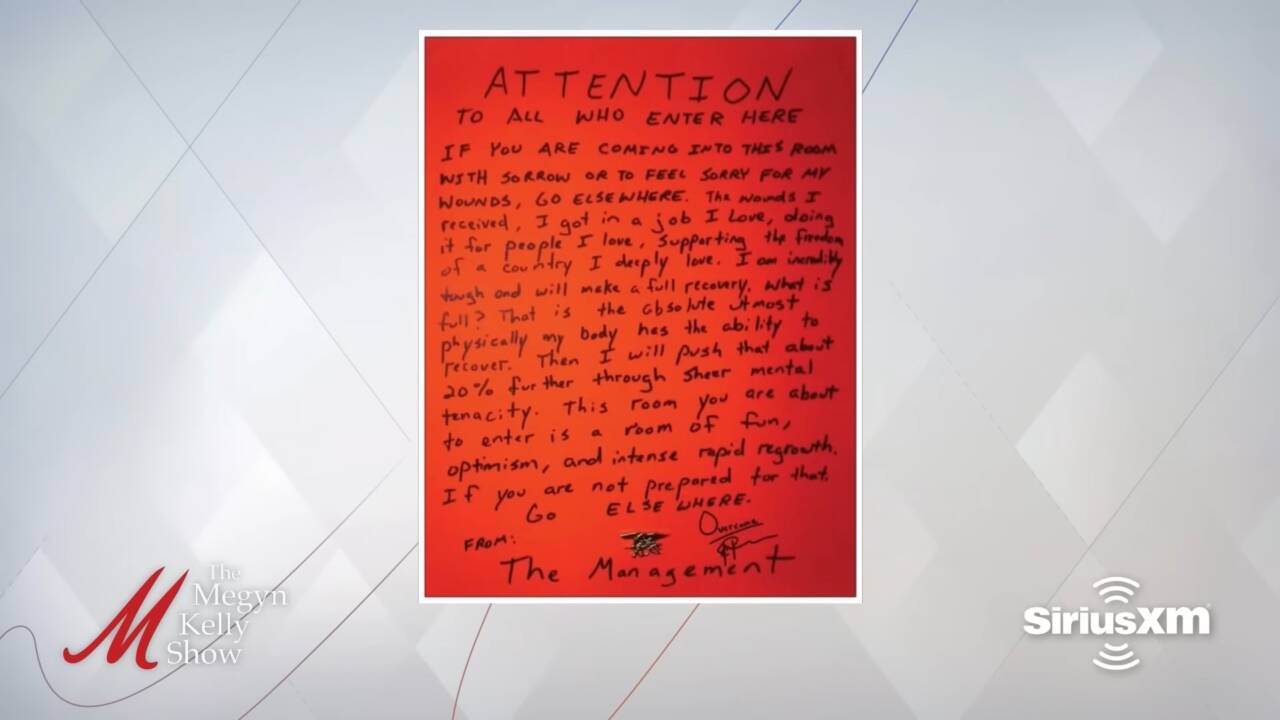 ATTENTION
TO ALL WHO ENTER HERE
IF YOU ARE COMING INTO THIS ROOM
WITH SORROW OR TO FEEL SORRY FOR MY
WOUNDS, GO ELSEWHERE. The wounds I
received, I got in a job I love, doing
it for people I love, supporting the freedom
of a country I deeply love. I am incredibly
tough and will make a full recovery. What is
full? That is the absolute utmost
physically my body has the ability to
recover. Then I will push that about
20% further through sheer mental
tenacity. This room you are about
to enter is a room of fun,
optimism, and intense rapid regrowth.
If you are not prepared for that,
Go ELSEWHERE.
Overcome
FROM:
The Management
The
Megyn
Kelly
Show
SiriusXM